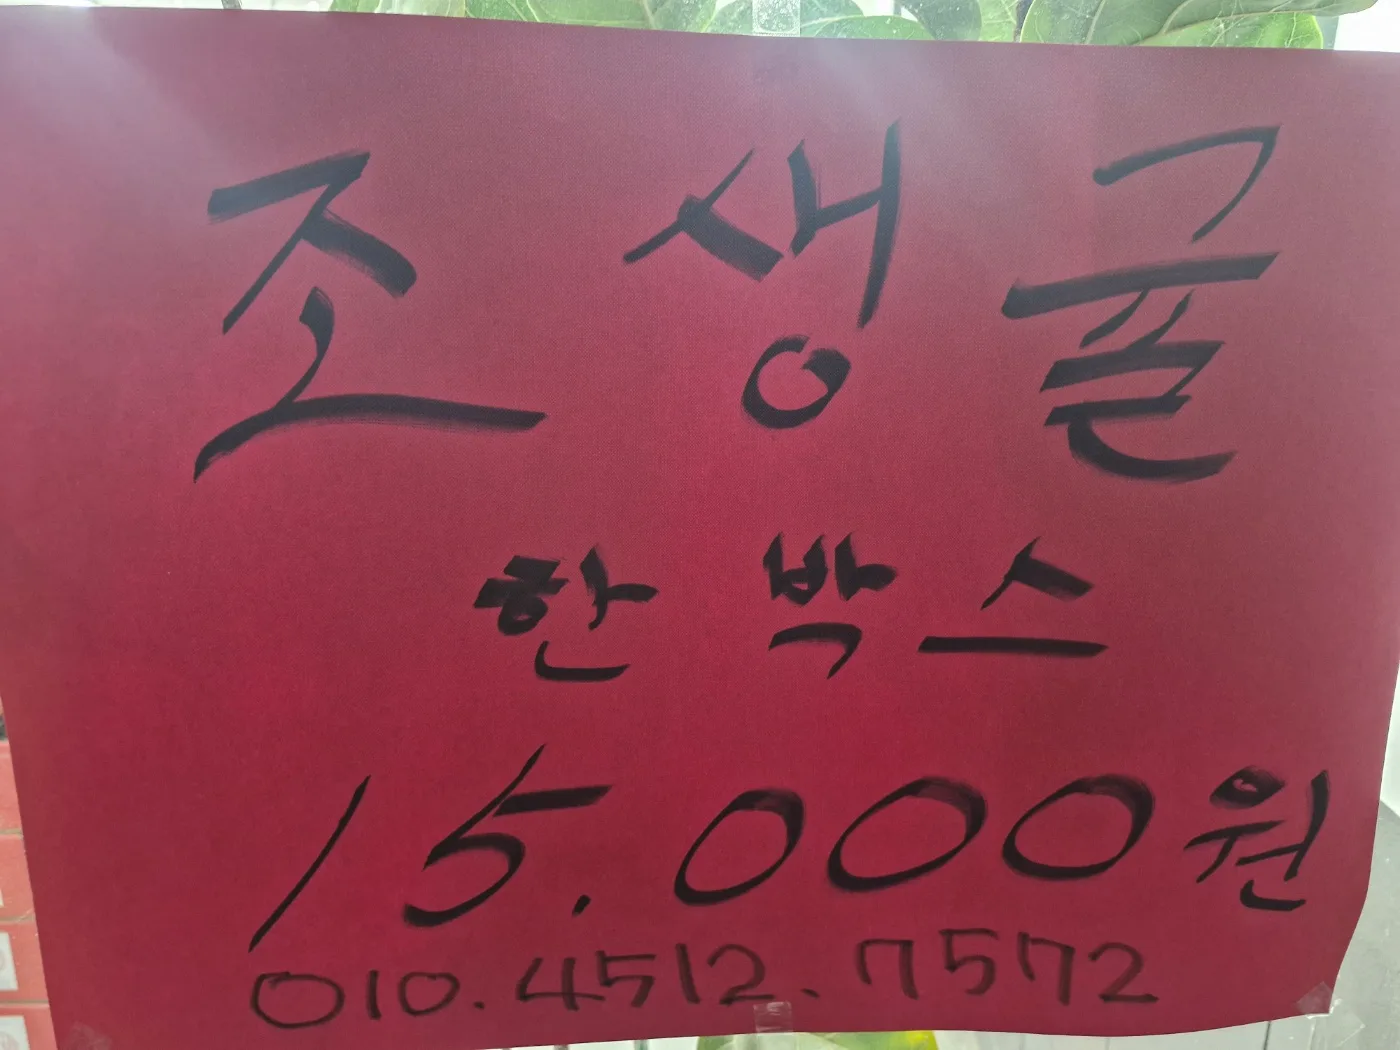 조생귤
한박스
15.000원
010.4512.7572